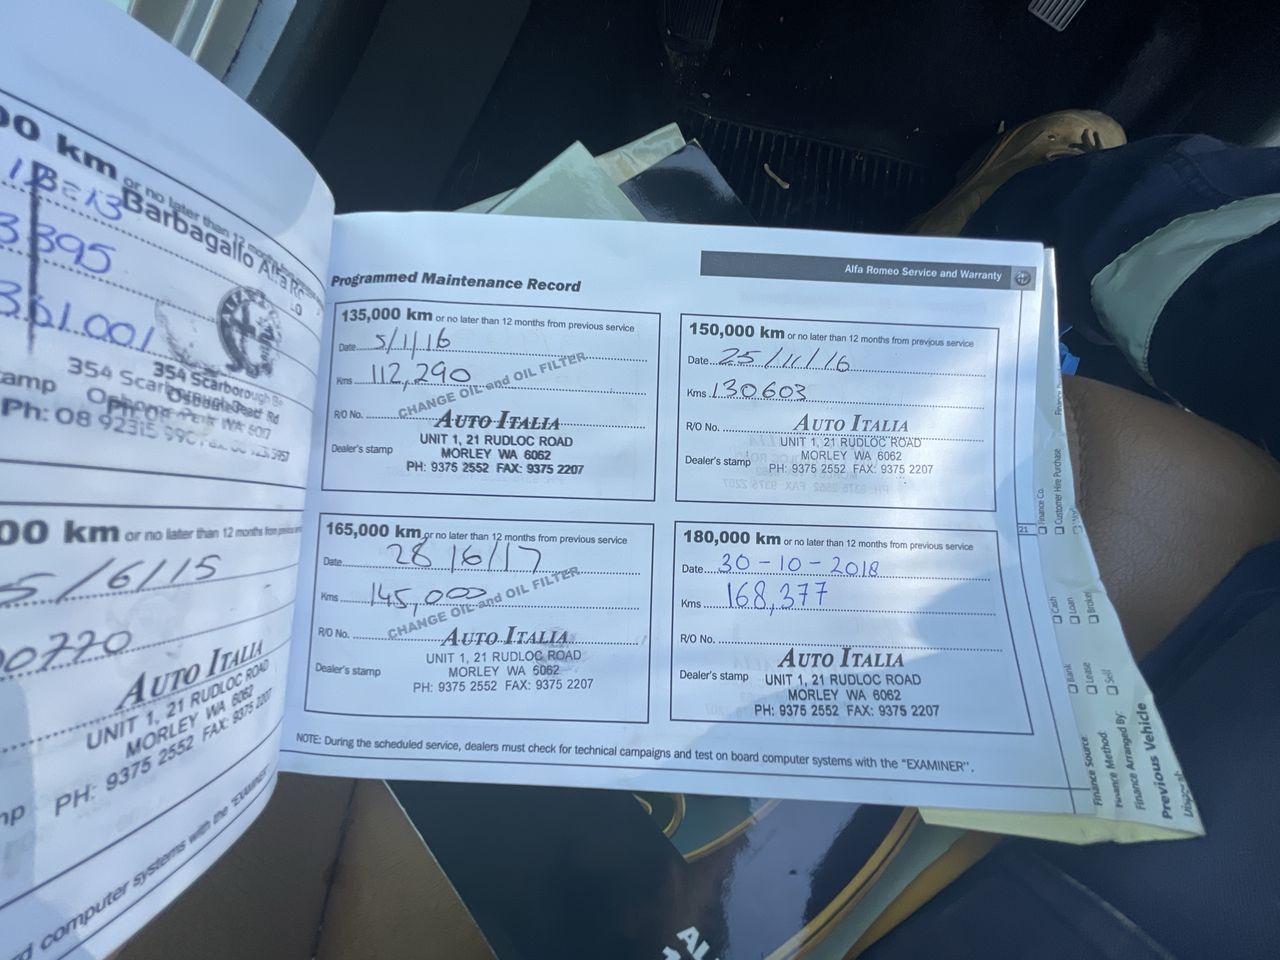 00 km or no later than 12 months
1 B=13
Barbagallo Alfa Ro
3395
361.001
354 Scarborough Be
354 Scarborough
Osborne Park WA 6017
amp
Ph: 08 9231 5
00 km or no later than 12 months from previous
5/6/15
00770
AUTO ITALIA
UNIT 1, 21 RUDLOC ROAD
MORLEY WA 6062
PH: 9375 2552 FAX: 9375 2207
mp
computer systems with the "EXAMINER
Alfa Romeo Service and Warranty
Programmed Maintenance Record
135,000 km or no later than 12 months from previous service
Date 5/1/16
Kms 112,290
CHANGE OIL and OIL FILTER
R/O No.
AUTO ITALIA
UNIT 1, 21 RUDLOC ROAD
Dealer's stamp
MORLEY WA 6062
PH: 9375 2552 FAX: 9375 2207
150,000 km or no later than 12 months from previous service
Date 25/11/16
Kms 130603
R/O No.
AUTO ITALIA
UNIT 1, 21 RUDLOC ROAD
Dealer's stamp
MORLEY WA 6062
PH: 9375 2552 FAX: 9375 2207
165,000 km or no later than 12 months from previous service
Date 28/6/17
Kms 145,000
CHANGE OIL and OIL FILTER
R/O No.
AUTO ITALIA
UNIT 1, 21 RUDLOC ROAD
Dealer's stamp
MORLEY WA 6062
PH: 9375 2552 FAX: 9375 2207
180,000 km or no later than 12 months from previous service
Date 30-10-2018
Kms 168,377
R/O No.
AUTO ITALIA
Dealer's stamp
UNIT 1, 21 RUDLOC ROAD
MORLEY WA 6062
PH: 9375 2552 FAX: 9375 2207
NOTE: During the scheduled service, dealers must check for technical campaigns and test on board computer systems with the "EXAMINER".
21
Finance Co.
Customer Hire Purchase
Finance
Cash
Loan
Broker
Bank
Lease
Sell
Finance Source
Finance Method:
Finance Arranged By:
Previous Vehicle
AL